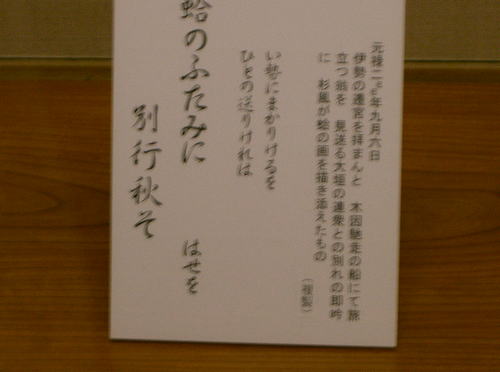 元禄二年九月六日
伊勢の遷宮を拝まんと　木因馳走の船にて旅
立つ翁を　見送る大垣の連衆との別れの即吟
に　杉風が蛤の画を描き添えたもの
（複製）
い勢にまかりけるを
ひとの送りけれは
蛤のふたみに
別行秋そ
はせを